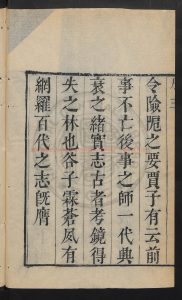 令險阨之要賈子有云前
事不亡後事之師一代興
衰之緒實志古者考鏡得
失之林也咎子霖蒼夙有
網羅百代之志旣膺